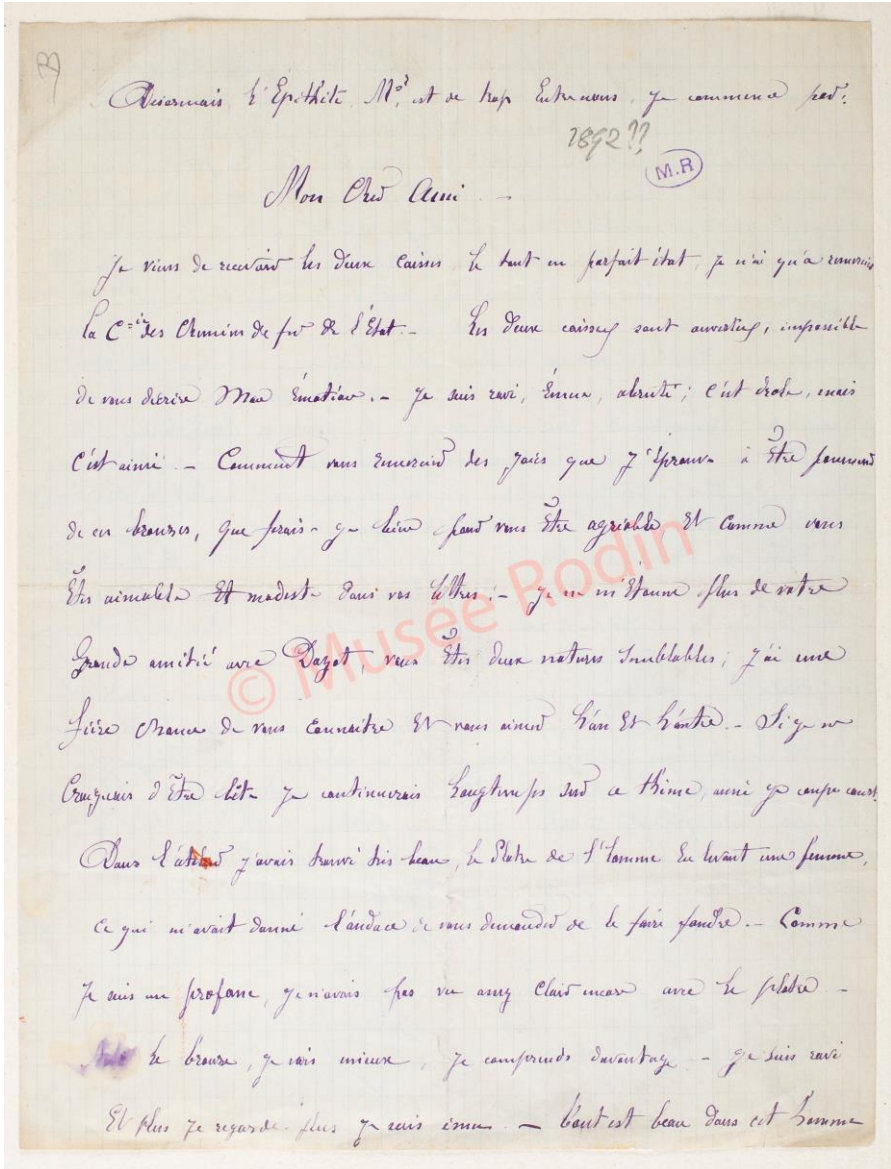 Désormais l'Épithète Mr, est de trop Entre nous, je commence par:
1892??
M.R
Mon Cher Ami -
Je viens de recevoir les deux caisses le tout en parfait état, je n'ai qu'à remercier
la Cie des Chemins de fer de l'État. - Les deux caisses sont ouvertes, impossible
de vous décrire Mon émotion. - Je suis ravi, Ému, abruti; C'est drole, mais
C'est ainsi - Comment vous remercier des joies que J'éprouve à Être possesseur
de ces bronzes, que ferais-je bien pour vous Être agréable Et Comme vous
Êtes aimable Et modeste dans vos lettres. - Je ne m'Étonne plus de votre
Grande amitié avec Dayot, vous Êtes deux natures semblables; J'ai une
fière chance de vous Connaitre Et vous aimer l'un Et l'autre. - Si je ne
Craignais d'Être bête Je continuerais longtemps sur ce thème, aussi je coupe court.
Dans l'atelier j'avais trouvé très beau, le Platre de l'homme Enlevant une femme,
ce qui m'avait donné l'audace de vous demander de le faire fondre. - Comme
Je suis un profane, je n'avais pas vu assez Clair encore avec le platre -
le bronze, je vois mieux, Je comprends davantage - Je suis ravi
Et plus Je regarde plus je suis ému - tout est beau dans cet homme
© Musée Rodin